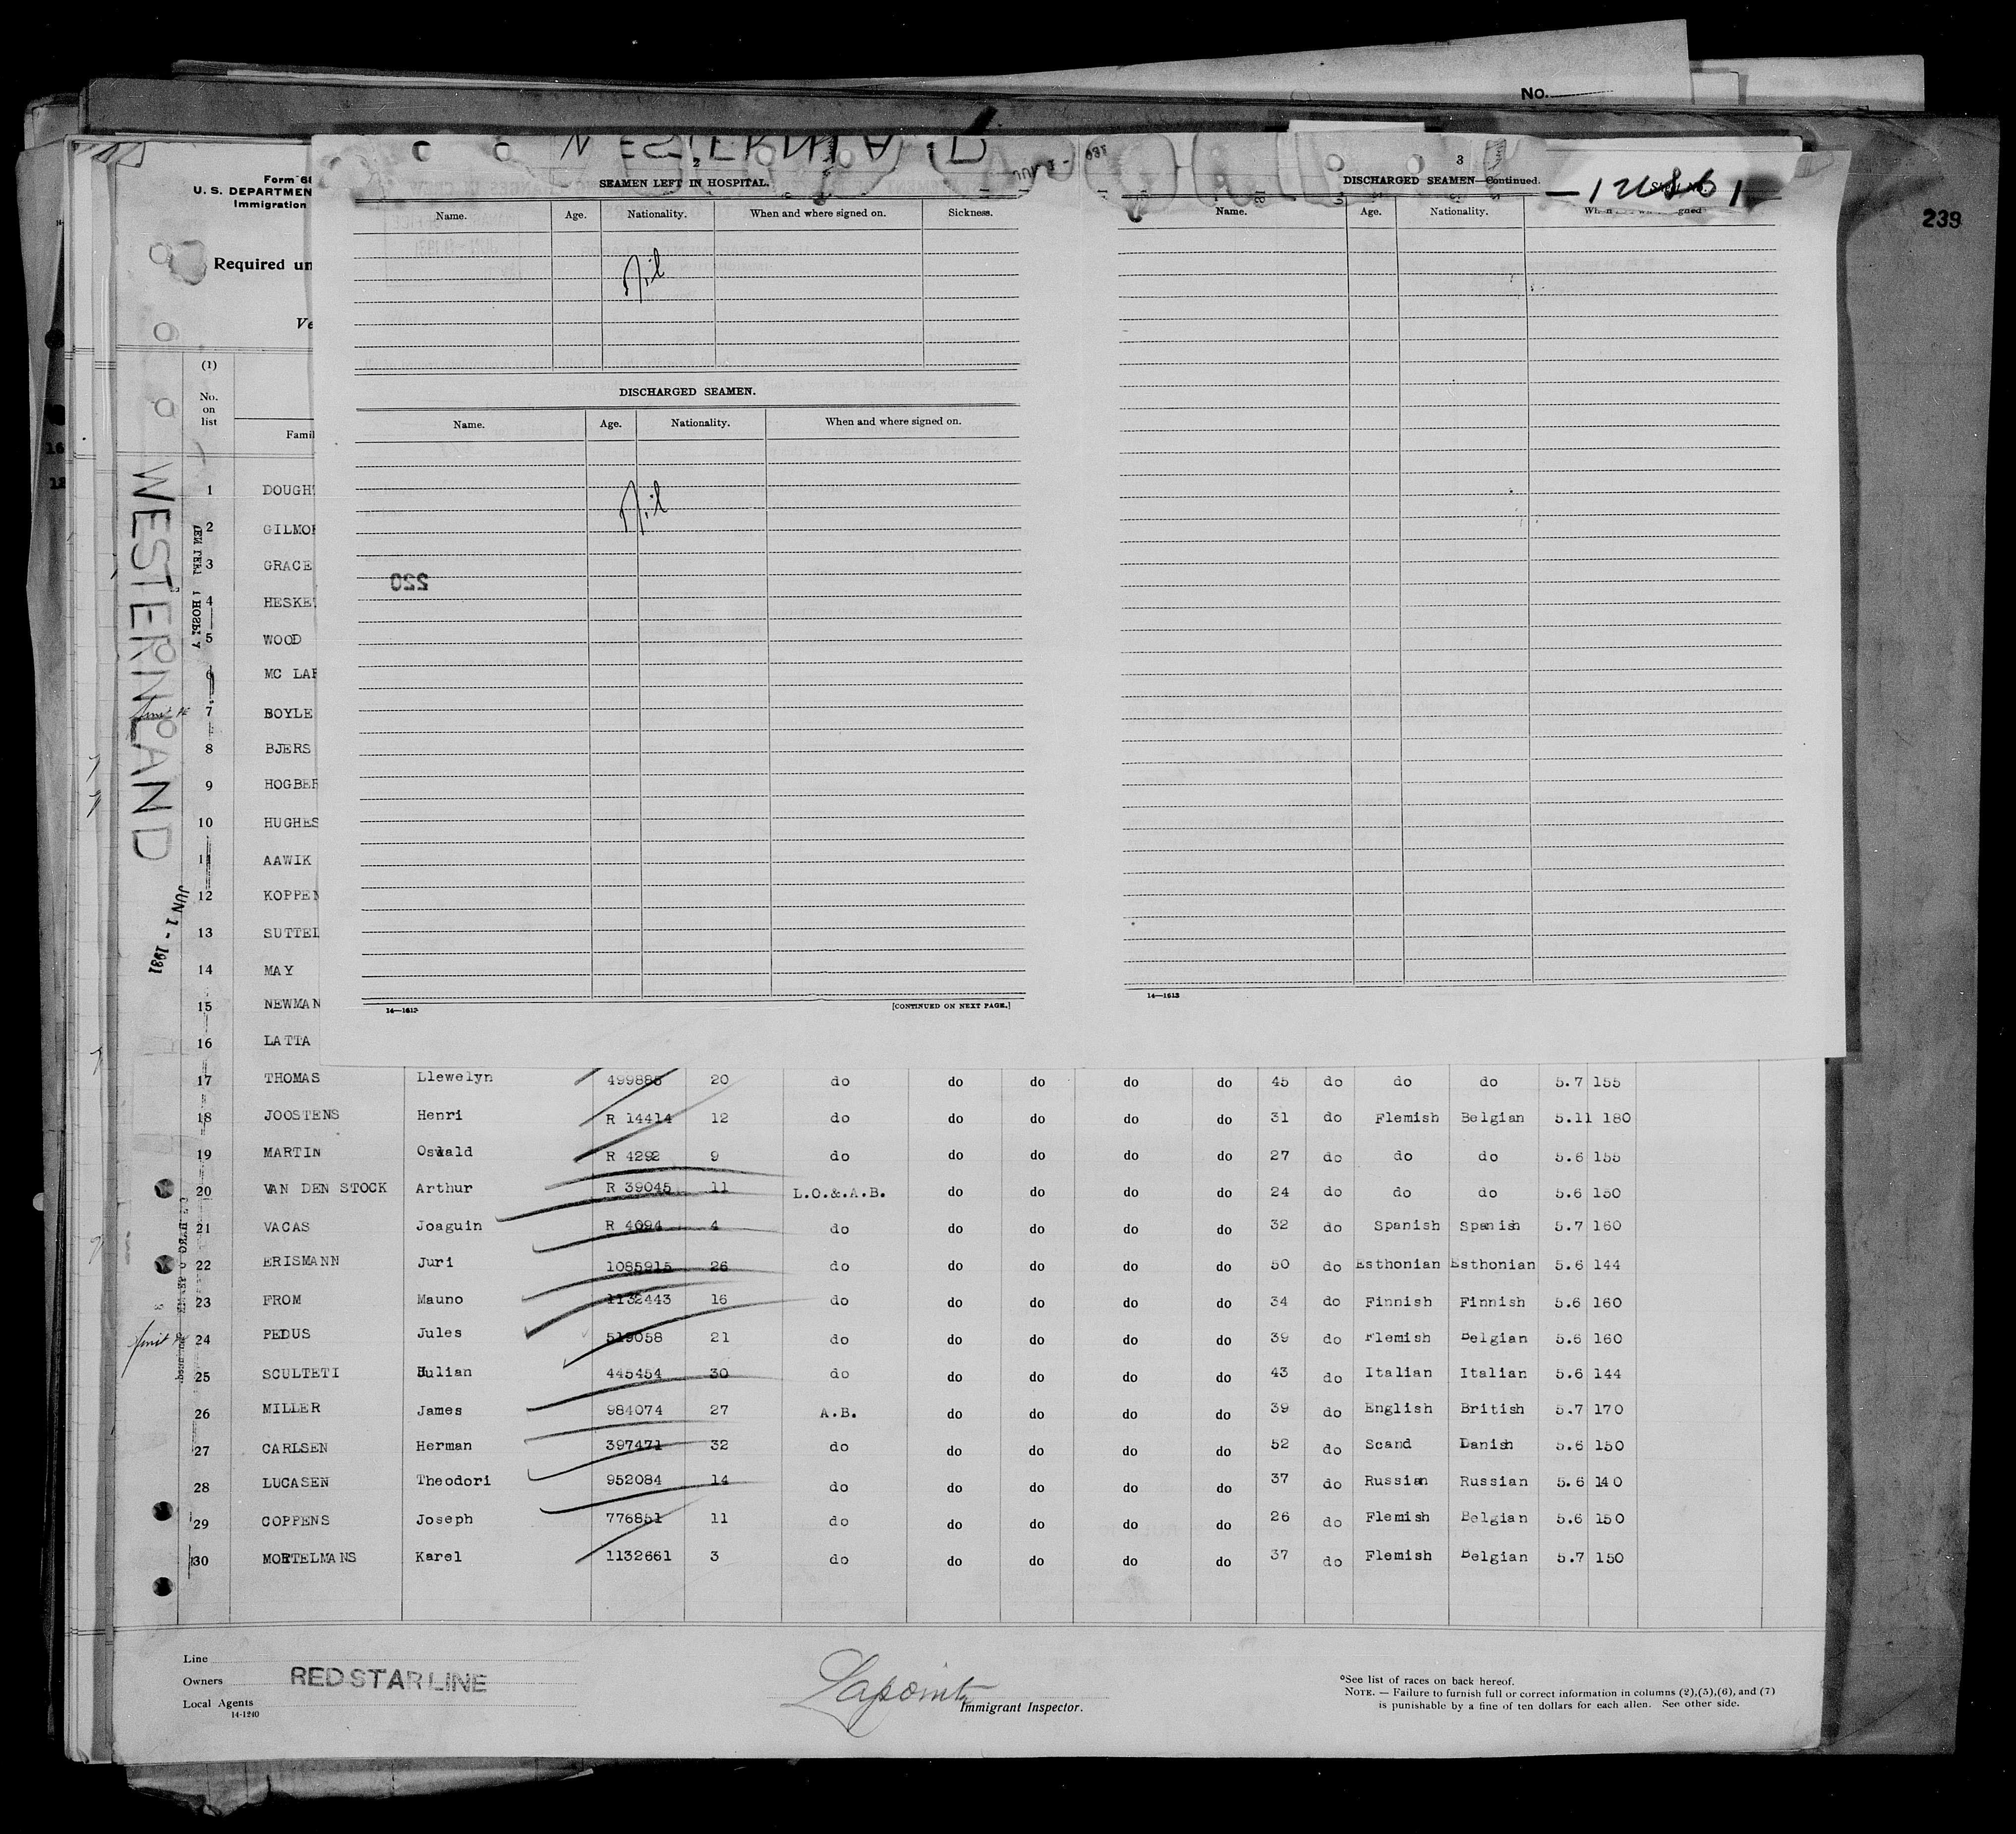 No.
239
Form 68
U. S. DEPARTMEN
Immigration
Required un
Ve
2
SEAMEN LEFT IN HOSPITAL.
Name. Age. Nationality. When and where signed on. Sickness.
Nil
DISCHARGED SEAMEN.
Name. Age. Nationality. When and where signed on.
Nil
220
14—1613 [CONTINUED ON NEXT PAGE.]
3
DISCHARGED SEAMEN—Continued.
Name. Age. Nationality.
14—1613
WESTERNLAND
JUN 1 - 1931
(1)
No.
on
list
Famil
1 DOUGHT
2 GILMOR
3 GRACE
4 HESKET
5 WOOD
6 MC LAR
7 BOYLE
8 BJERS
9 HOGBER
10 HUGHES
11 AAWIK
12 KOPPEN
13 SUTTEL
14 MAY
15 NEWMAN
16 LATTA
17 THOMAS Llewelyn 499885 20 do do do do do 45 do do do 5.7 155
18 JOOSTENS Henri R 14414 12 do do do do do 31 do Flemish Belgian 5.11 180
19 MARTIN Oswald R 4292 9 do do do do do 27 do do do 5.6 155
20 VAN DEN STOCK Arthur R 39045 11 L.O.&.A.B. do do do do 24 do do do 5.6 150
21 VACAS Joaguin R 4094 4 do do do do do 32 do Spanish Spanish 5.7 160
22 ERISMANN Juri 1085915 26 do do do do do 50 do Esthonian Esthonian 5.6 144
23 FROM Mauno 1132443 16 do do do do do 34 do Finnish Finnish 5.6 160
24 PEDUS Jules 519058 21 do do do do do 39 do Flemish Belgian 5.6 160
25 SCULTETI Hulian 445454 30 do do do do do 43 do Italian Italian 5.6 144
26 MILLER James 984074 27 A.B. do do do do 39 do English British 5.7 170
27 CARLSEN Herman 397471 32 do do do do do 52 do Scand Danish 5.6 150
28 LUCASEN Theodori 952084 14 do do do do do 37 do Russian Russian 5.6 140
29 COPPENS Joseph 776851 11 do do do do do 26 do Flemish Belgian 5.6 150
30 MORTELMANS Karel 1132661 3 do do do do do 37 do Flemish Belgian 5.7 150
Line
Owners RED STAR LINE
Local Agents
14-1240
Lapointe
Immigrant Inspector.
°See list of races on back hereof.
NOTE. — Failure to furnish full or correct information in columns (2),(5),(6), and (7)
is punishable by a fine of ten dollars for each alien. See other side.